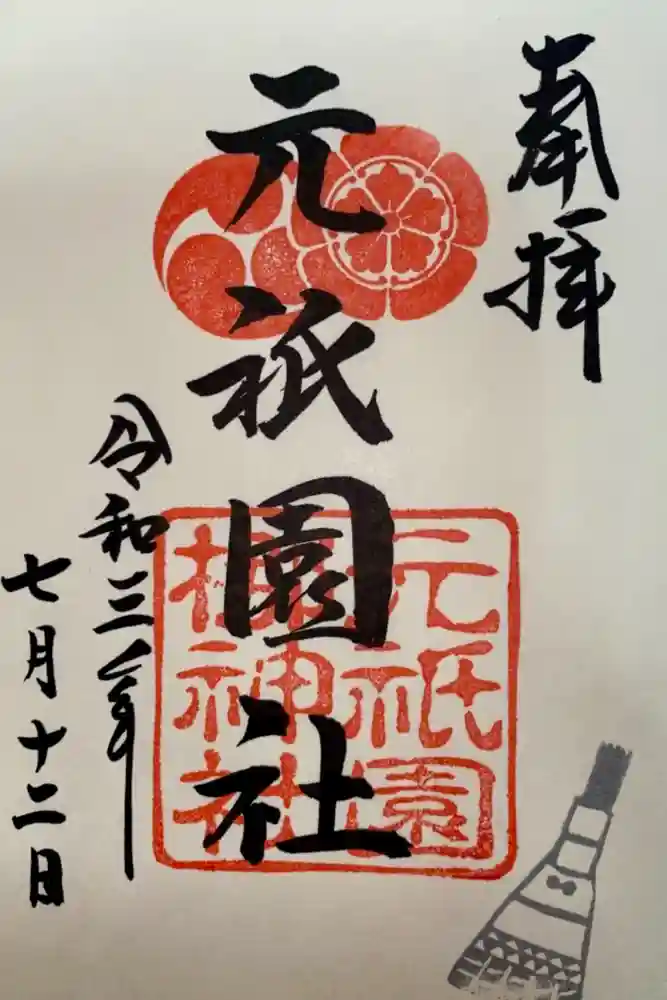 奉拝
元祇園社
元祇園
梛神社
令和三年
七月十二日